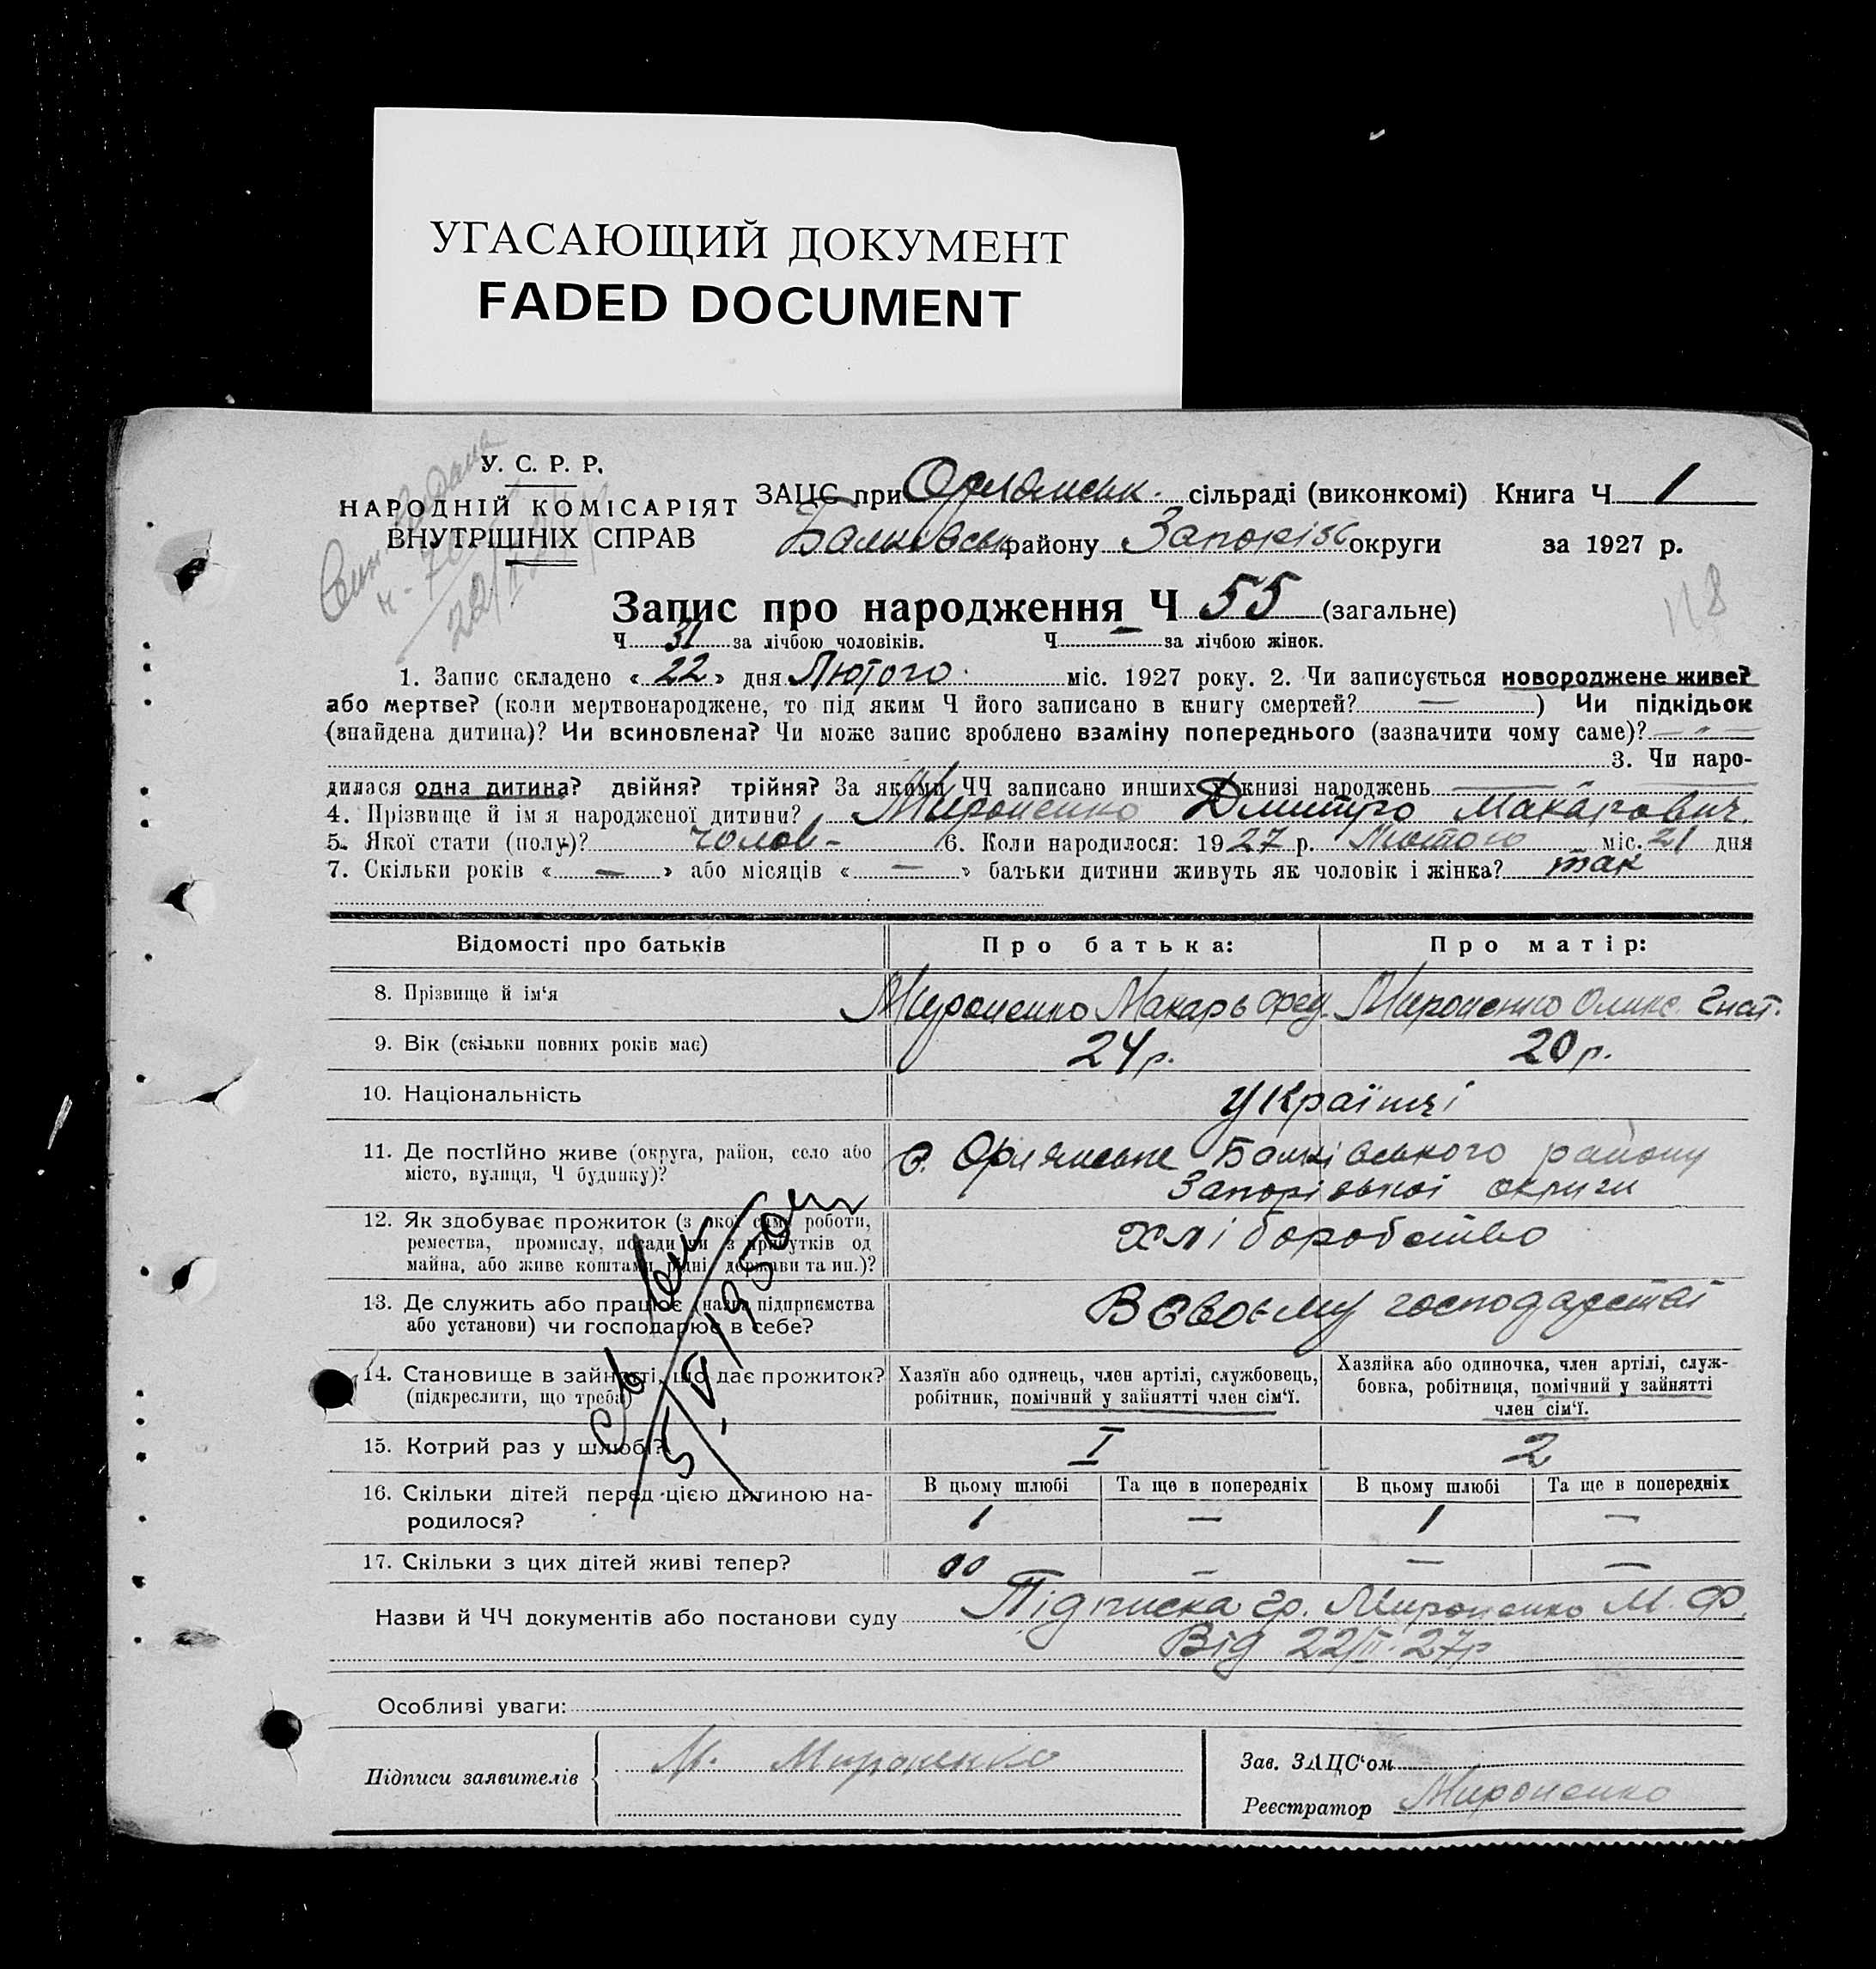 УГАСАЮЩИЙ ДОКУМЕНТ
FADED DOCUMENT
У. С. Р. Р.
НАРОДНІЙ КОМІСАРІЯТ
ВНУТРІШНІХ СПРАВ
ЗАЦС при Орлянськ. сільраді (виконкомі) Книга Ч 1
Балківськ району Запорізс округи за 1927 р.
Запис про народження Ч 55 (загальне)
Ч 31 за лічбою чоловіків. Ч — за лічбою жінок.
118
1. Запис складено « 22 » дня Лютого міс. 1927 року. 2. Чи записується новороджене живе?
або мертве? (коли мертвонароджене, то під яким Ч його записано в книгу смертей? — ) Чи підкідьок
(знайдена дитина)? Чи всиновлена? Чи може запис зроблено взаміну попереднього (зазначити чому саме)? — " —
3. Чи наро-
дилася одна дитина? двійня? трійня? За якими ЧЧ записано инших у книзі народжень —
4. Прізвище й ім'я народженої дитини? Мироненко Дмитро Макарович.
5. Якої стати (полу)? чолов - 6. Коли народилося: 1927 р. Лютого міс. 21 дня
7. Скільки років « — » або місяців « — » батьки дитини живуть як чоловік і жінка? так
Відомості про батьків Про батька: Про матір:
8. Прізвище й ім'я Мироненко Макарь Фед. Мироненко Оликс. Гнат.
9. Вік (скільки повних років має) 24 р. 20 р.
10. Національність Українці
11. Де постійно живе (округа, район, село або
місто, вулиця, Ч будинку)?
с. Орлянське Балківського району
Запорізької округи
12. Як здобуває прожиток (з якої саме роботи,
ремества, промислу, посади чи з прибутків од
майна, або живе коштами рідні, держави та ин.)?
хліборобство
13. Де служить або працює (назва підприємства
або установи) чи господарює в себе?
В своєму господарстві
14. Становище в зайнятті, що дає прожиток?
(підкреслити, що треба)
Хазяїн або одинець, член артілі, службовець,
робітник, помічний у зайнятті член сім'ї.
Хазяйка або одиночка, член артілі, служ-
бовка, робітниця, помічний у зайнятті
член сім'ї.
15. Котрий раз у шлюбі? I 2
5/V 1950
16. Скільки дітей перед цією дитиною на-
родилося?
В цьому шлюбі Та ще в попередніх В цьому шлюбі Та ще в попередніх
1 — 1 —
17. Скільки з цих дітей живі тепер? 00 — — —
Назви й ЧЧ документів або постанови суду Підписка гр. Мироненко М. Ф.
Від 22/II-27р
Особливі уваги:
Підписи заявителів М. Мироненко
Зав. ЗАЦС'ом
Реєстратор Мироненко